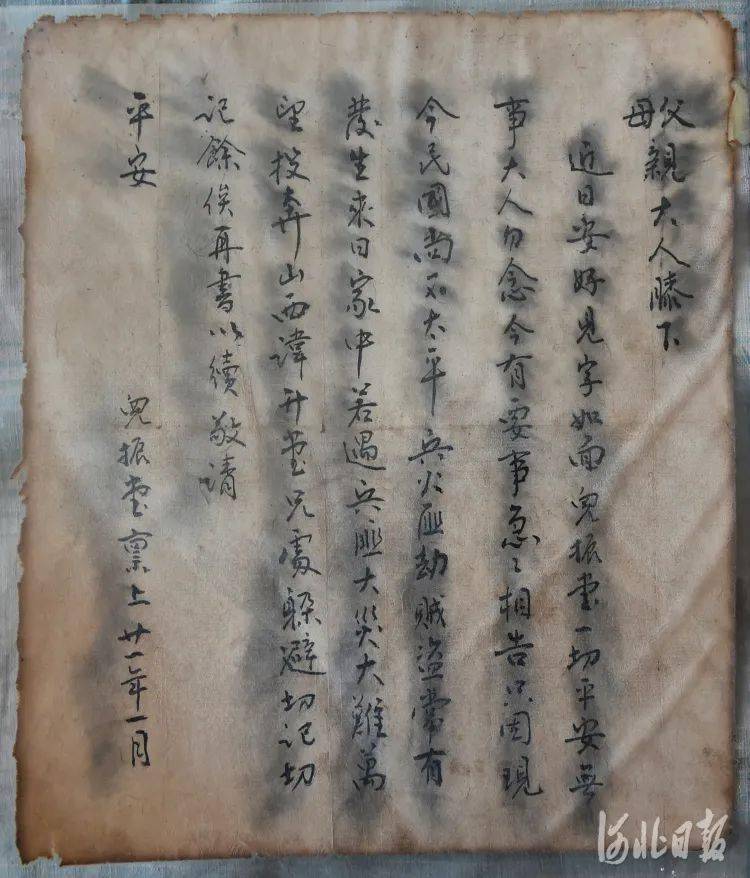 父母親大人膝下
近日安好見字如面兒振堂一切平安無
事大人勿念今有要事急々相告只因現
今民國尚不太平兵火匪劫賊盜常有
發生來日家中若遇兵匪大災大難萬
望投奔山西諱升堂兄處躲避切記切
記餘俟再書以續敬請
平安
兒振堂稟上廿一年一月
河北日报